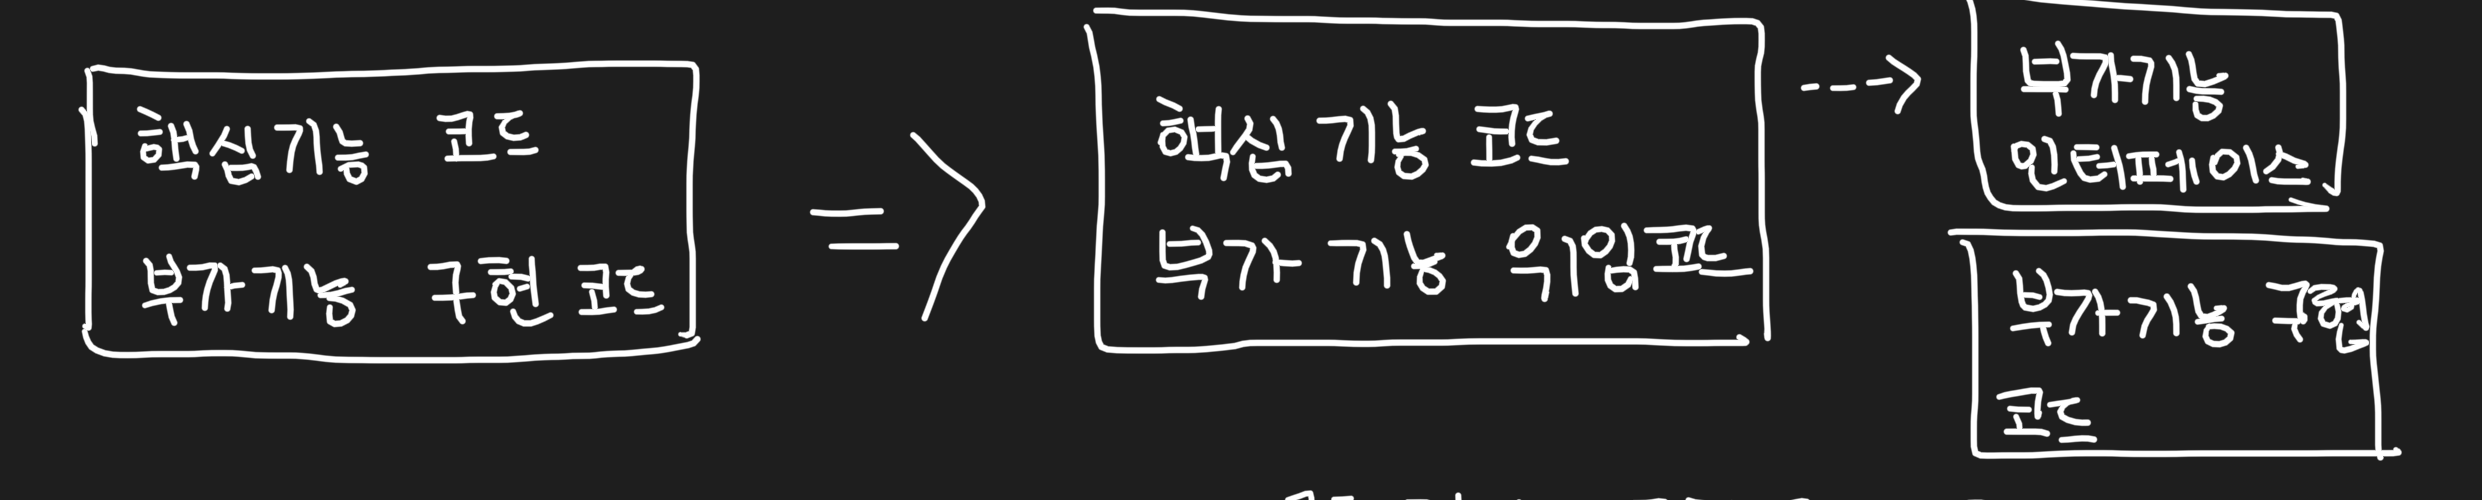 핵심기능 코드
부가기능 구현 코드
핵심 기능 코드
부가 기능 위임코드
부가기능
인터페이스
부가기능 구현
코드